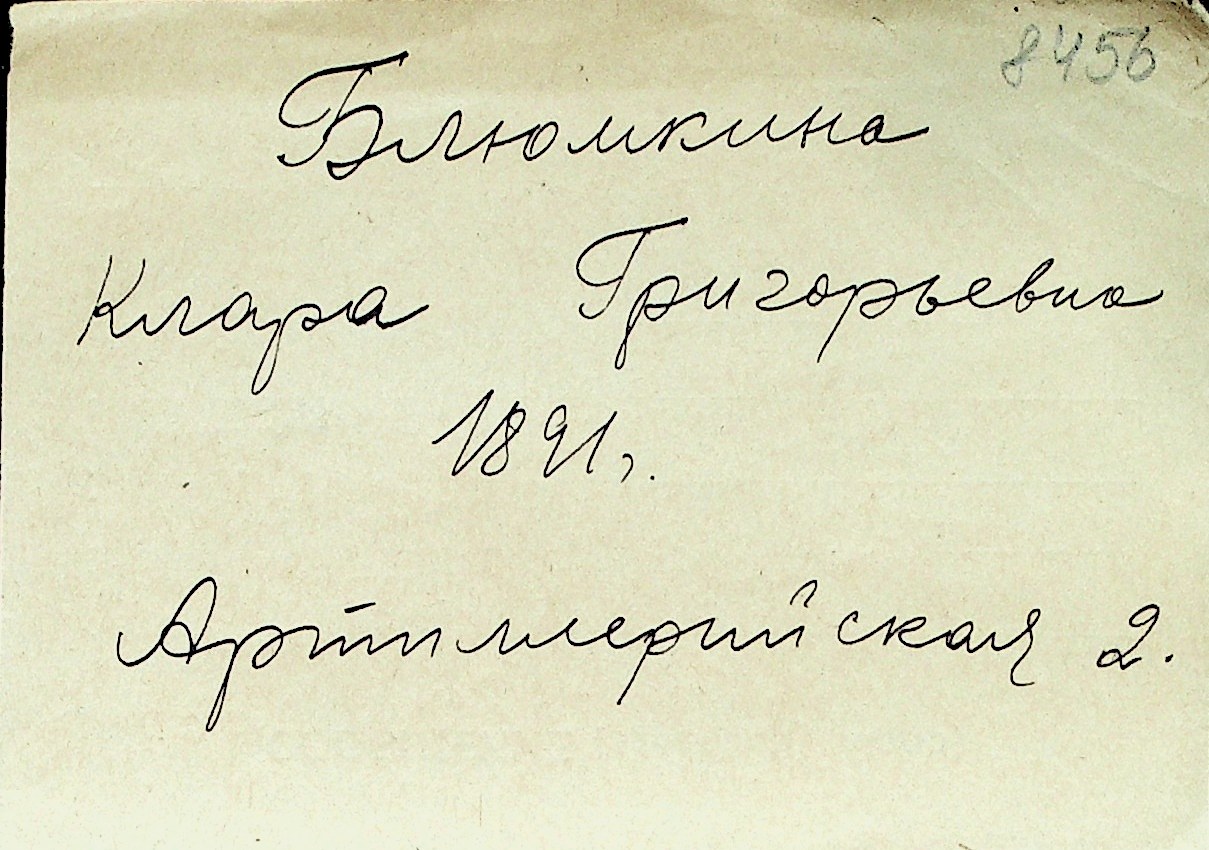 8456
Блюмкина
Клара Григорьевна
1891г.
Артиллерийская 2.